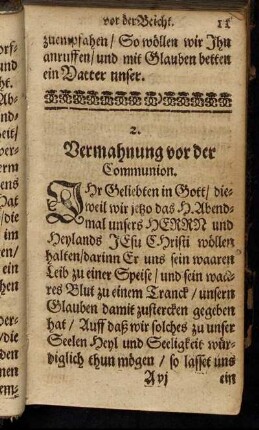 vor der Beicht. 11
zuempfahen/ So wöllen wir Ihn
anruffen/ und mit Glauben betten
ein Vatter unser.
2.
Vermahnung vor der
Communion.
IHr Geliebten in Gott/ die-
weil wir jetzo das H. Abend-
mal unsers HERRN und
Heylands JEsu CHristi wöllen
halten/ darinn Er uns sein waaren
Leib zu einer Speise/ und sein waa-
res Blut zu einem Tranck/ unsern
Glauben damit zustercken gegeben
hat/ Auff daß wir solches zu unser
Seelen Heyl und Seeligkeit wür-
diglich thun mögen/ so lasset uns
A vj ein